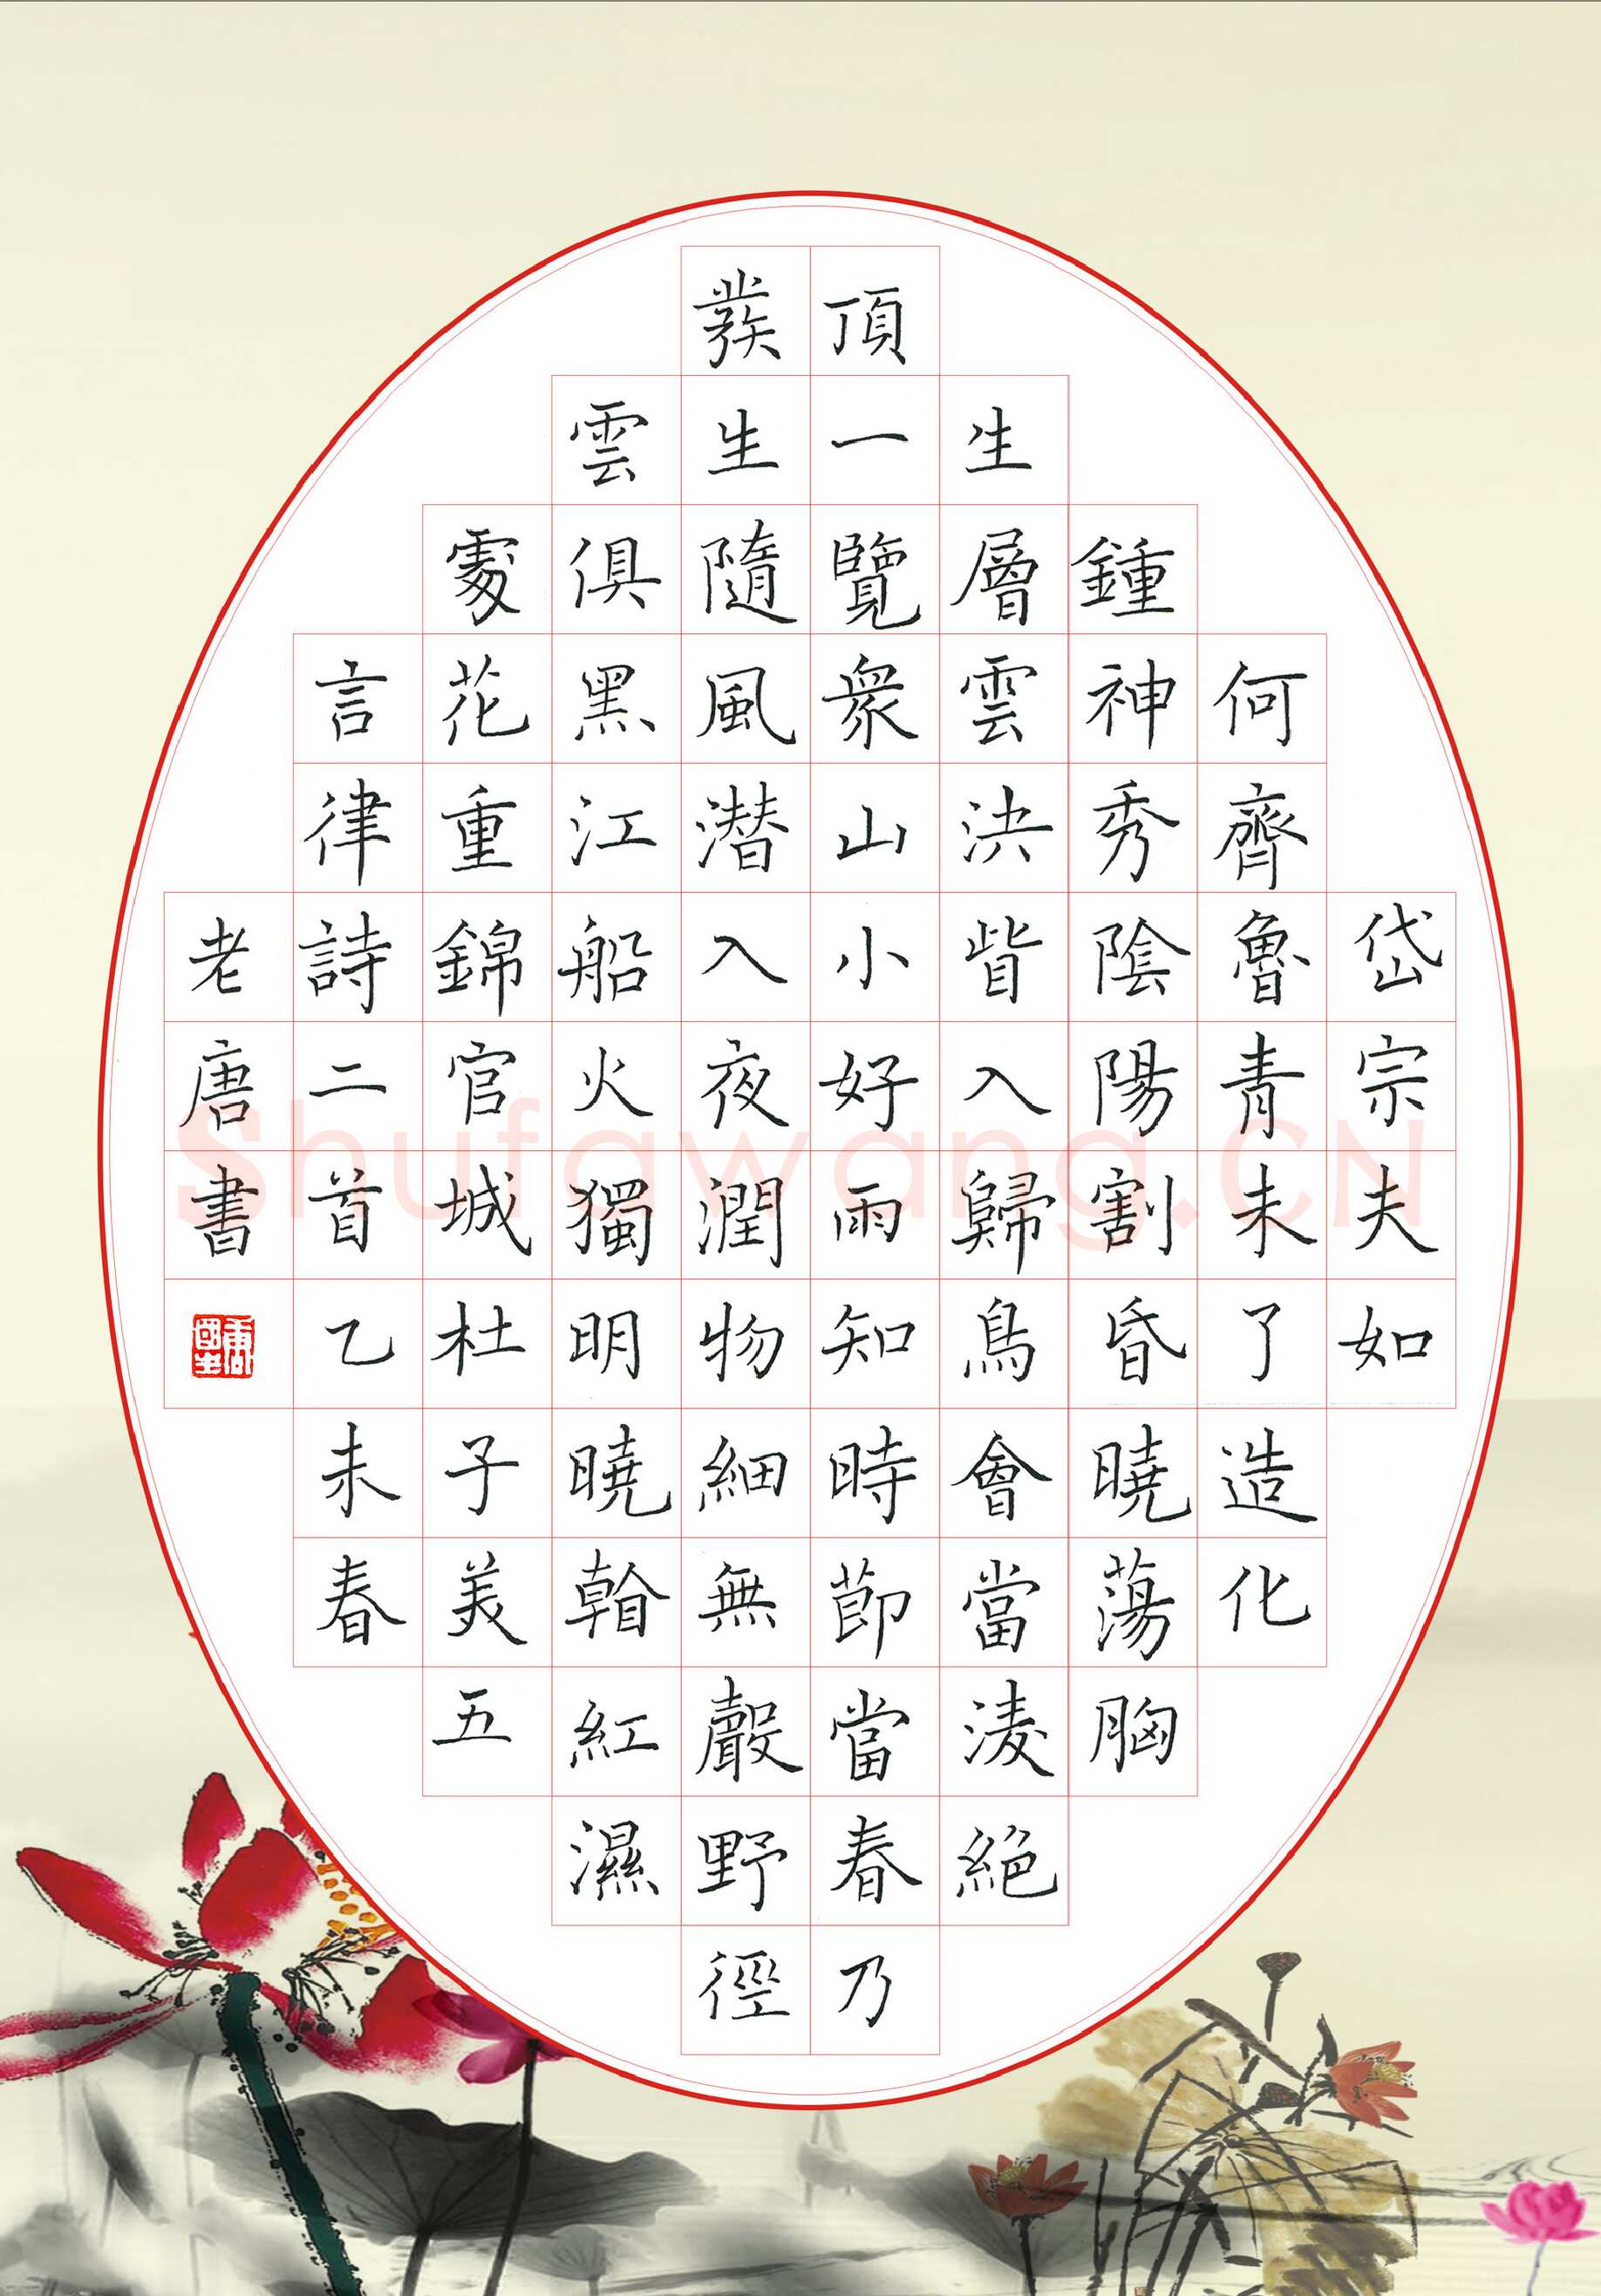 岱宗夫如
何齊魯青未了造化
鍾神秀陰陽割昏曉蕩胸
生層雲決眥入歸鳥會當淩絕
頂一覽眾山小好雨知時節當春乃
發生隨風潛入夜潤物細無聲野徑
雲俱黑江船火獨明曉看紅濕
處花重錦官城杜子美五
言律詩二首乙未春
老唐書
Shufawang.CN